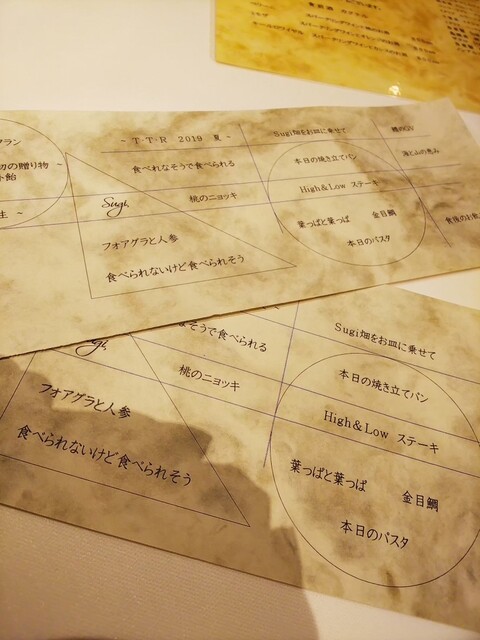 ~ T·T·R 2019 夏 ~
Sugi畑をお皿に乗せて
食べれなそうで食べられる
本日の焼き立てパン
海と山の恵み
初の贈り物 ~
ト飴
High&Low ステーキ
Sugi.
桃のニョッキ
生 ~
葉っぱと葉っぱ 金目鯛
フォアグラと人参
本日のパスタ
食べられないけど食べられそう
Sugi畑をお皿に乗せて
そうで食べられる
本日の焼き立てパン
桃のニョッキ
フォアグラと人参
High&Low ステーキ
食べられないけど食べられそう
葉っぱと葉っぱ 金目鯛
本日のパスタ